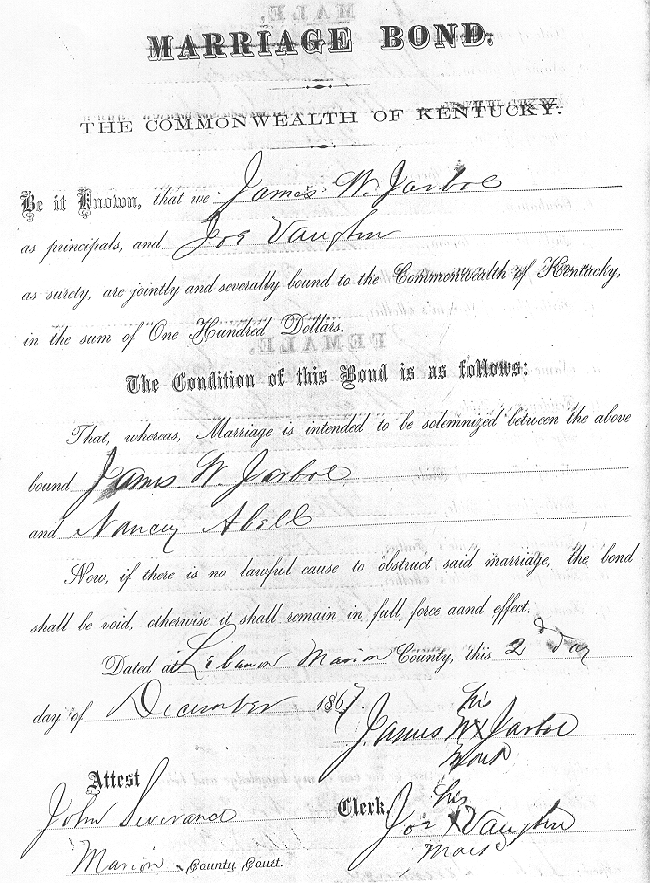 MARRIAGE BOND.
THE COMMONWEALTH OF KENTUCKY.
Be it Known, that we James W. Jarboe
as principals, and Joe Vaughn
as surety, are jointly and severally bound to the Commonwealth of Kentucky,
in the sum of One Hundred Dollars.
The Condition of this Bond is as follows:
That, whereas, Marriage is intended to be solemnized between the above
bound James W. Jarboe
and Nancy Abell
Now, if there is no lawful cause to obstruct said marriage, the bond
shall be void, otherwise it shall remain in full force aand effect.
Dated at Lebanon Marion County, this 2 day
day of December 1867
his
James W X Jarboe
mark
Attest
John Clerk.
his
Joe X Vaughn
mark
Marion County Court.